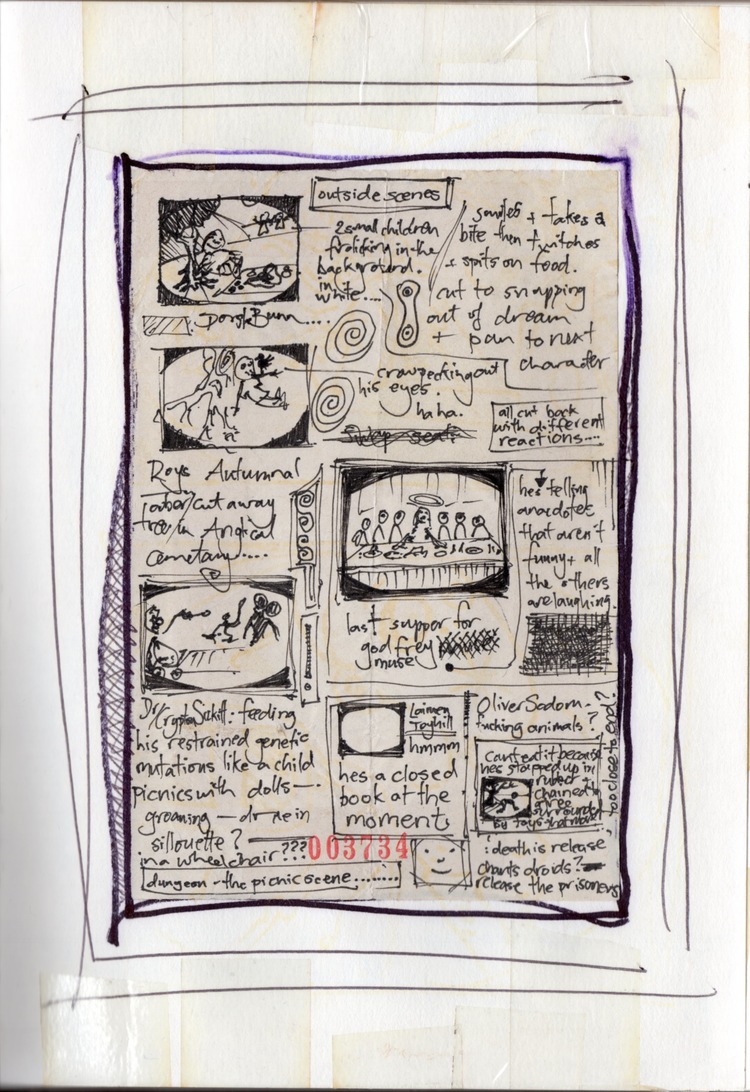 outside scenes
2 small children
frolicking in the
background.
in
white....
smiles + takes a
bite then twitches
+ spits on food.
cut to snapping
out of dream
+ pan to next
character
crow pecking out
his eyes.
ha ha.
all cut back
with different
reactions....
Roys Autumnal
cut away
tree in
hes telling
anecdotes
that aren't
funny + all
the others
are laughing.
last supper for
god frey
muse
feeding
his restrained genetic
mutations like a child
picnics with dolls -
groaning - dr
silloutte?
in a wheelchair???
003734
dungeon - the picnic scene........
hmmm
hes a closed
book at the
moment
Oliver Sodom-
fucking animals?
too close to end?
Cant eat it because
hes strapped up in
rubber +
chained to
a tree
surrounded
by toys
: death is release,
chants droids?
release the prisoners